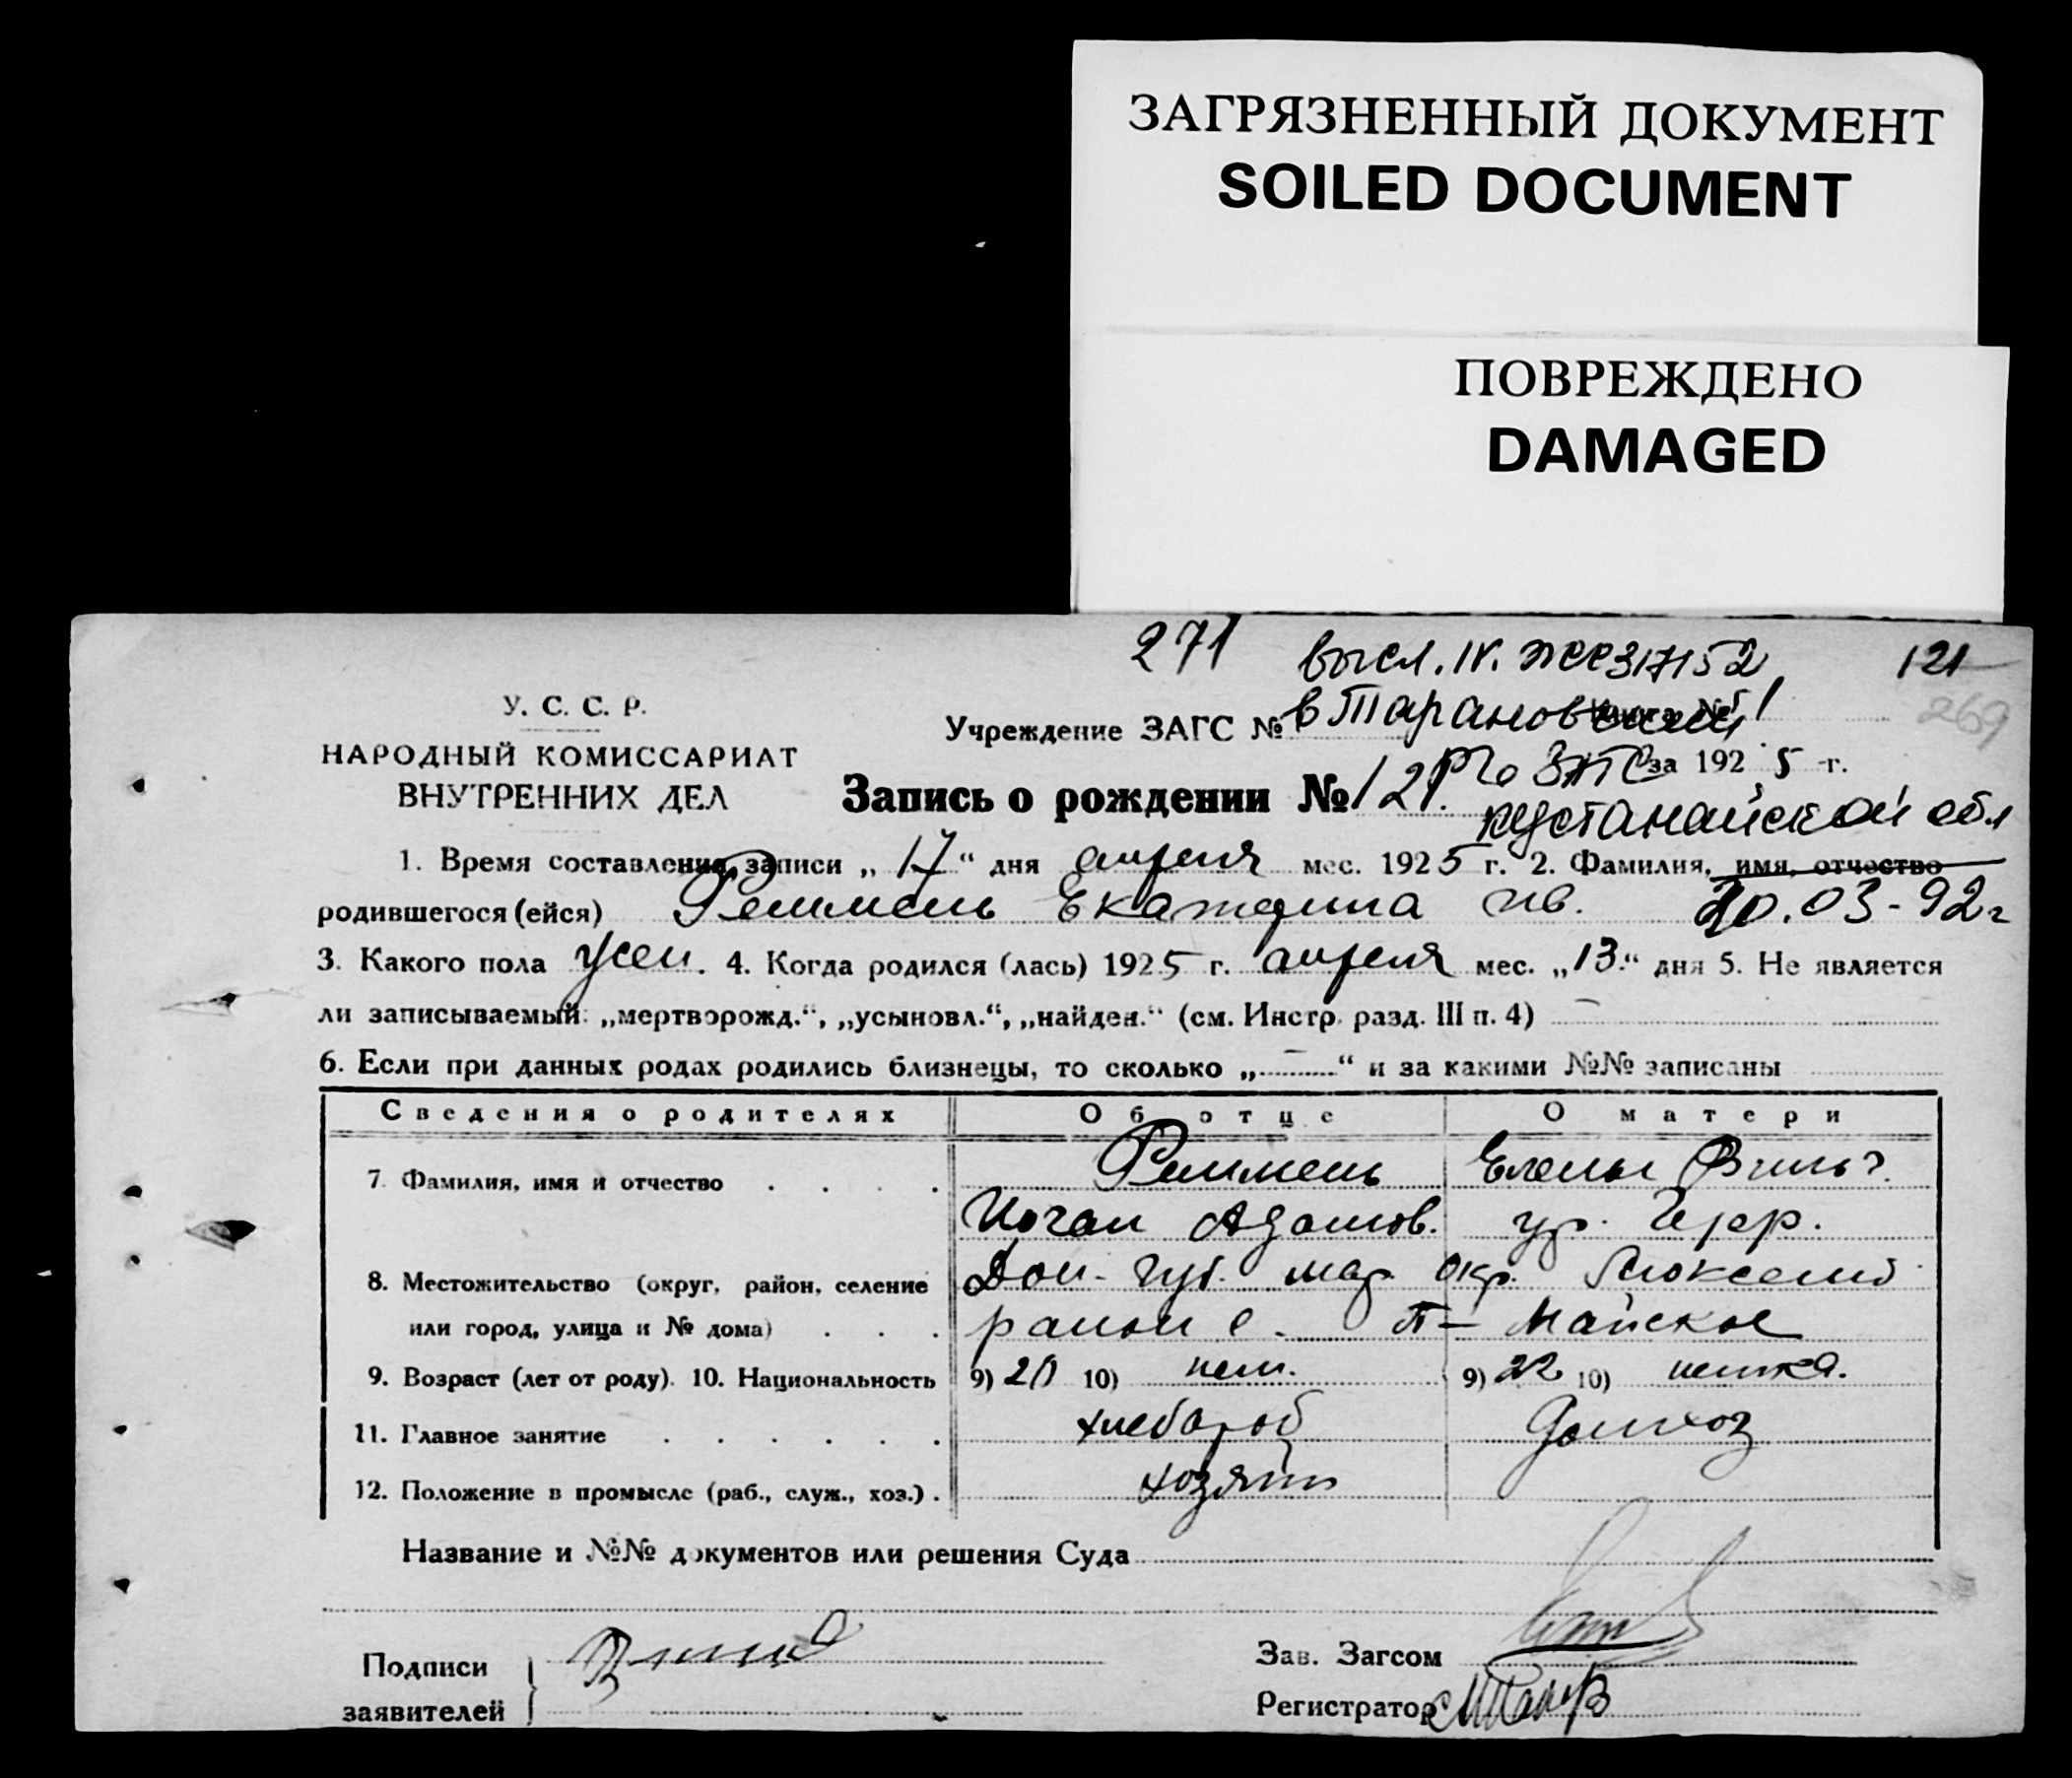 ЗАГРЯЗНЕННЫЙ ДОКУМЕНТ
SOILED DOCUMENT
ПОВРЕЖДЕНО
DAMAGED
271 высл. IV. ЖС 317152 121
269
У. С. С. Р.
НАРОДНЫЙ КОМИССАРИАТ
ВНУТРЕННИХ ДЕЛ
Учреждение ЗАГС № в Тарановский
Рчо ЗАГС за 1925 г.
Запись о рождении № 121.
Кустанайской обл
1. Время составления записи „17“ дня апреля мес. 1925 г. 2. Фамилия, имя, отчество
родившегося (ейся) Реммель Екатерина Ив. 30.03-92г
3. Какого пола жен. 4. Когда родился (лась) 1925 г. апреля мес. „13.“ дня 5. Не является
ли записываемый: „мертворожд.“, „усыновл.“, „найден.“ (см. Инстр. разд. III п. 4) —
6. Если при данных родах родились близнецы, то сколько „—“ и за какими №№ записаны
Сведения о родителях Об отце О матери
7. Фамилия, имя и отчество Реммель Елены Вильг.
Иоган Адамов. ур. Герр.
8. Местожительство (округ, район, селение Дон. губ. мар. окр. Люксемб
или город, улица и № дома) район с. П- Майское
9. Возраст (лет от роду). 10. Национальность 9) 20 10) нем. 9) 22 10) немка.
11. Главное занятие хлебороб домхоз
12. Положение в промысле (раб., служ., хоз.) хозяин
Название и №№ документов или решения Суда
Подписи
заявителей
Зав. Загсом
Регистратор